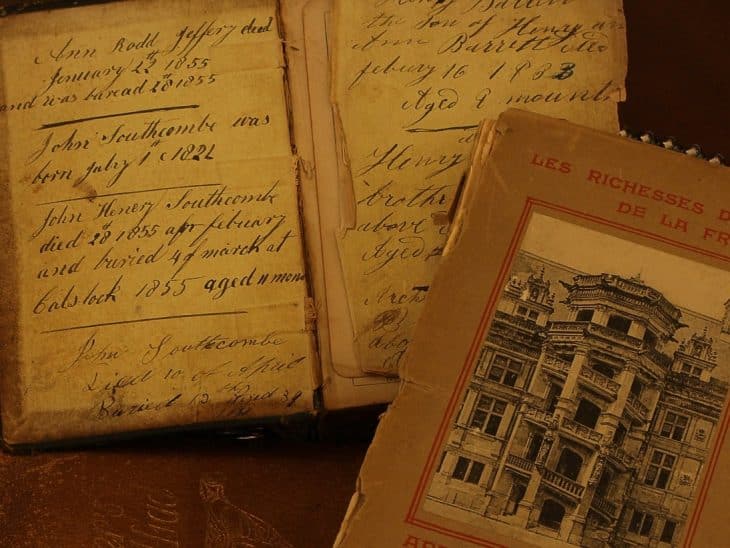 Ann Rodd Jeffery died
January 22th 1855
and was baread 28th 1855
John Southcombe was
born July 1st 1821
John Henery Southcombe
died 28 1855 febuary
and buried 4 of march at
Calstock 1855 aged 11 mon
John Southcombe
Died 10 of April
Buried 13
Henry
the son of Henry an
Ann Barrett died
febury 16 1833
Aged 9 mounth
Henry
brothe
above
Aged
LES RICHESSES D
DE LA FR